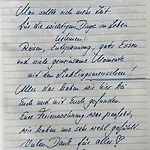 Man sollte sich mehr Zeit
für die wichtigen Dinge im Leben
nehmen!
Reisen, Entspannung, gutes Essen
und viele gemeinsame Momente
mit den Lieblingsmenschen!
Alles das haben wir hier bei
euch und mit euch gefunden.
Eure Ferienwohnung war perfekt,
wir haben uns sehr wohl gefühlt.
Vielen Dank für alles ♡